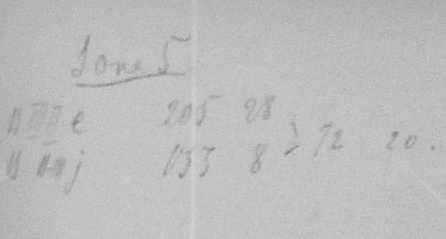 Zone 5
e 205 28
j 133 8 > 72 20.